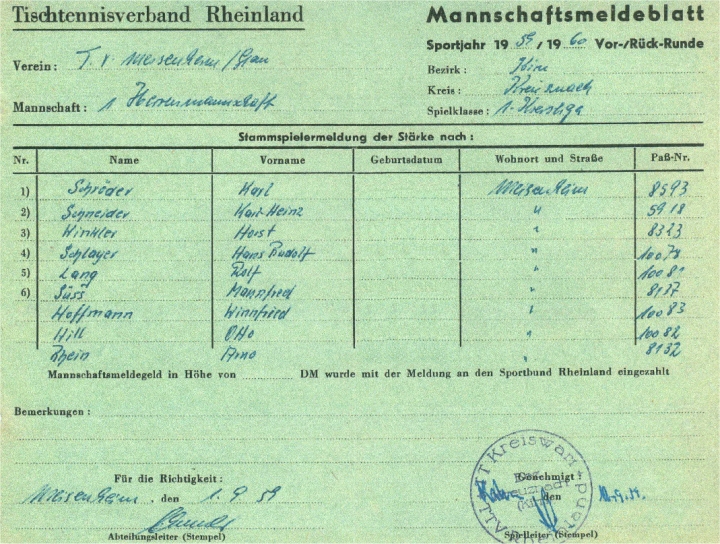 Tischtennisverband Rheinland
Mannschaftsmeldeblatt
Sportjahr 19 59 / 19 60 Vor-/Rück-Runde
Verein: T. V. Meisenheim/Glan
Bezirk:
Kreis: Kreuznach
Mannschaft: 1 Herrenmannschaft
Spielklasse: 1.
Stammspielermeldung der Stärke nach:
Nr. Name Vorname Geburtsdatum Wohnort und Straße Paß-Nr.
1) Schröder Karl Meisenheim 8593
2) Schneider Karl-Heinz " 5918
3) Winkler Horst " 8323
4) Schlayer Hans Rudolf " 10078
5) Lang Rolf " 10081
6) Süss Mannfred " 8137
Hoffmann Winnfried " 10083
Hill Otto " 10082
Rhein Arno " 8132
Mannschaftsmeldegeld in Höhe von DM wurde mit der Meldung an den Sportbund Rheinland eingezahlt
Bemerkungen:
Für die Richtigkeit: Genehmigt:
Meisenheim, den 1. 9 59 den
Abteilungsleiter (Stempel) Spielleiter (Stempel)